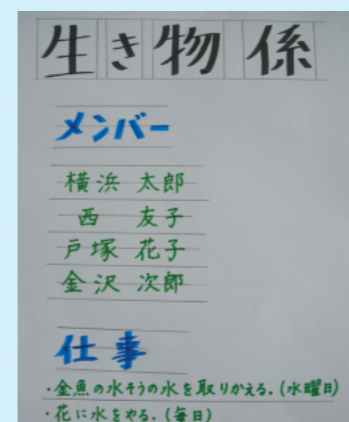 生き物係
メンバー
横浜 太郎
西 友子
戸塚 花子
金沢 次郎
仕事
・金魚の水そうの水を取りかえる。(水曜日)
・花に水をやる。(毎日)